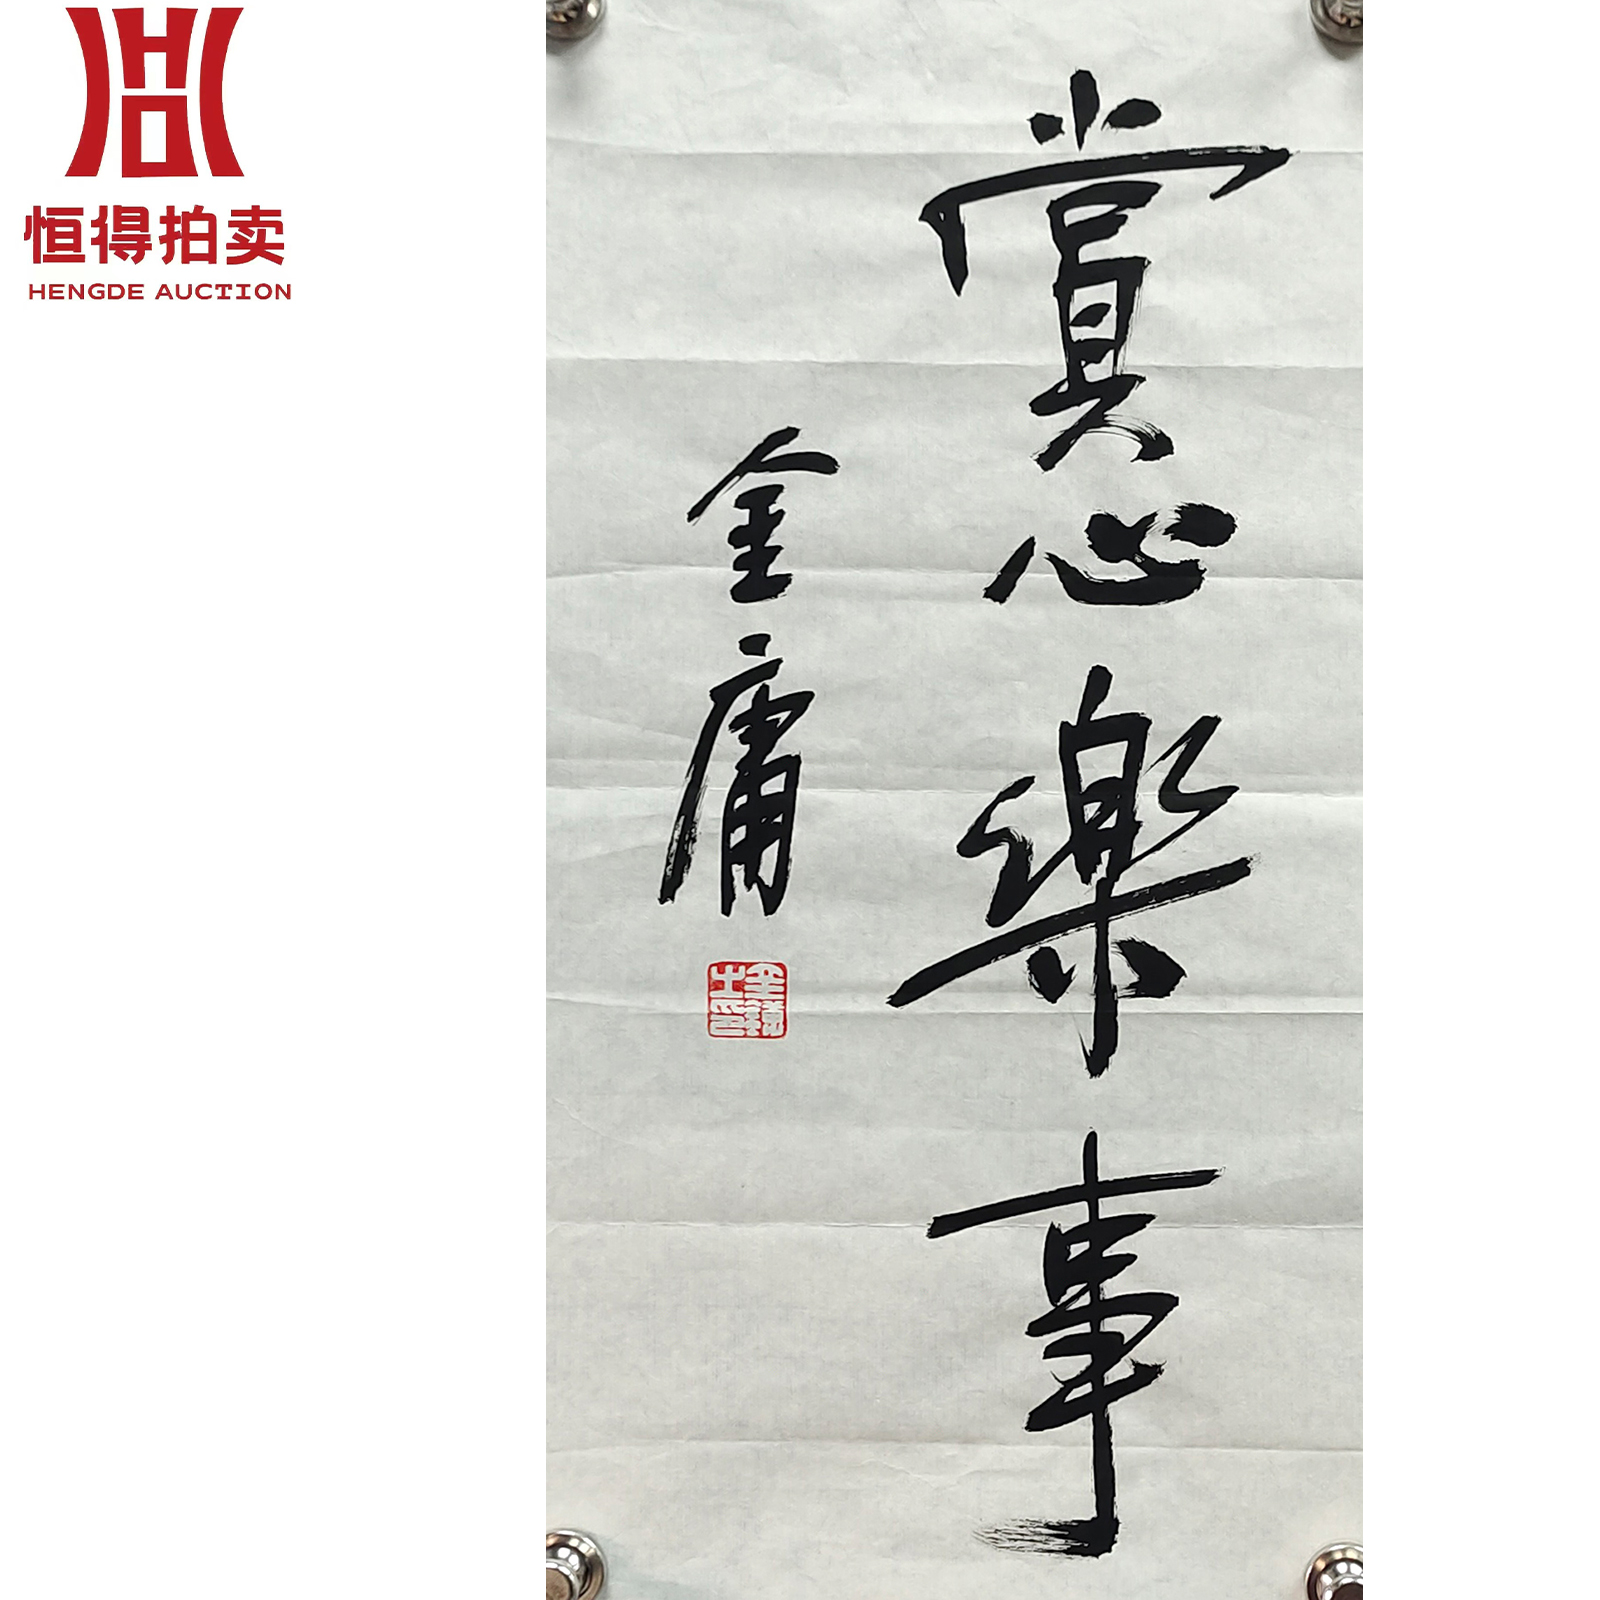 恒得拍卖
HENGDE AUCTION
賞心樂事
金庸